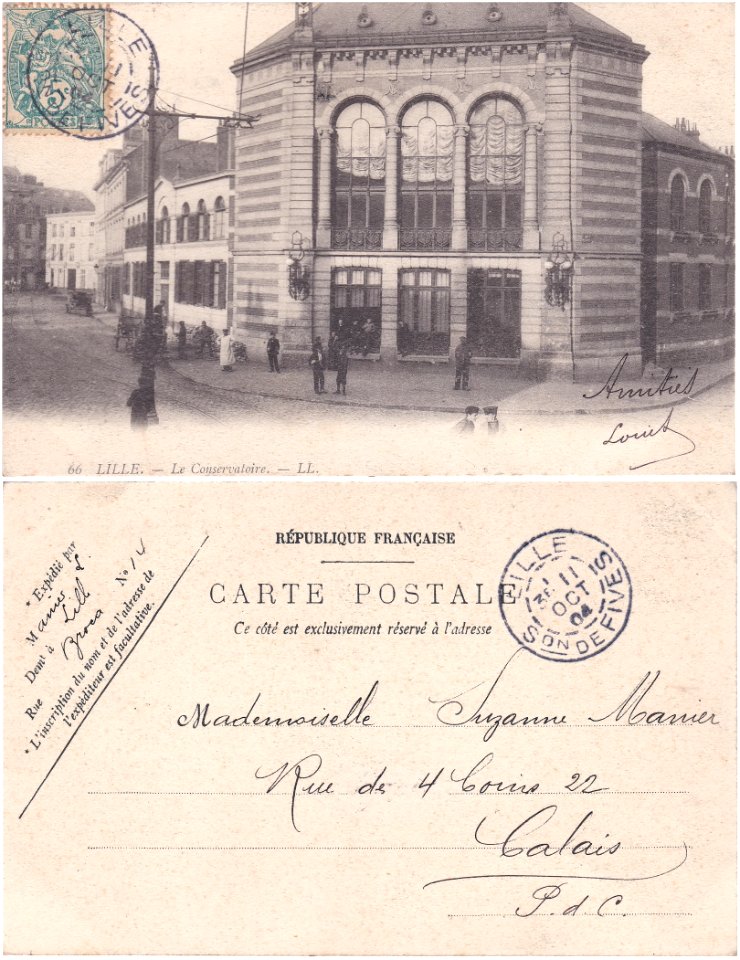 LILLE
11
OCT
FIVES
5c
Amitiés
Louis
66 LILLE. — Le Conservatoire. — LL.
RÉPUBLIQUE FRANÇAISE
CARTE POSTALE
Ce côté est exclusivement réservé à l'adresse
LILLE
3E 11
OCT
04
SON DE FIVES
* Expédié par
M L.
Demt à Lill
Rue Broca No 14
* L'inscription du nom et de l'adresse de
l'expéditeur est facultative.
Mademoiselle Suzanne Manier
Rue des 4 Coins 22
Calais
P. d C.